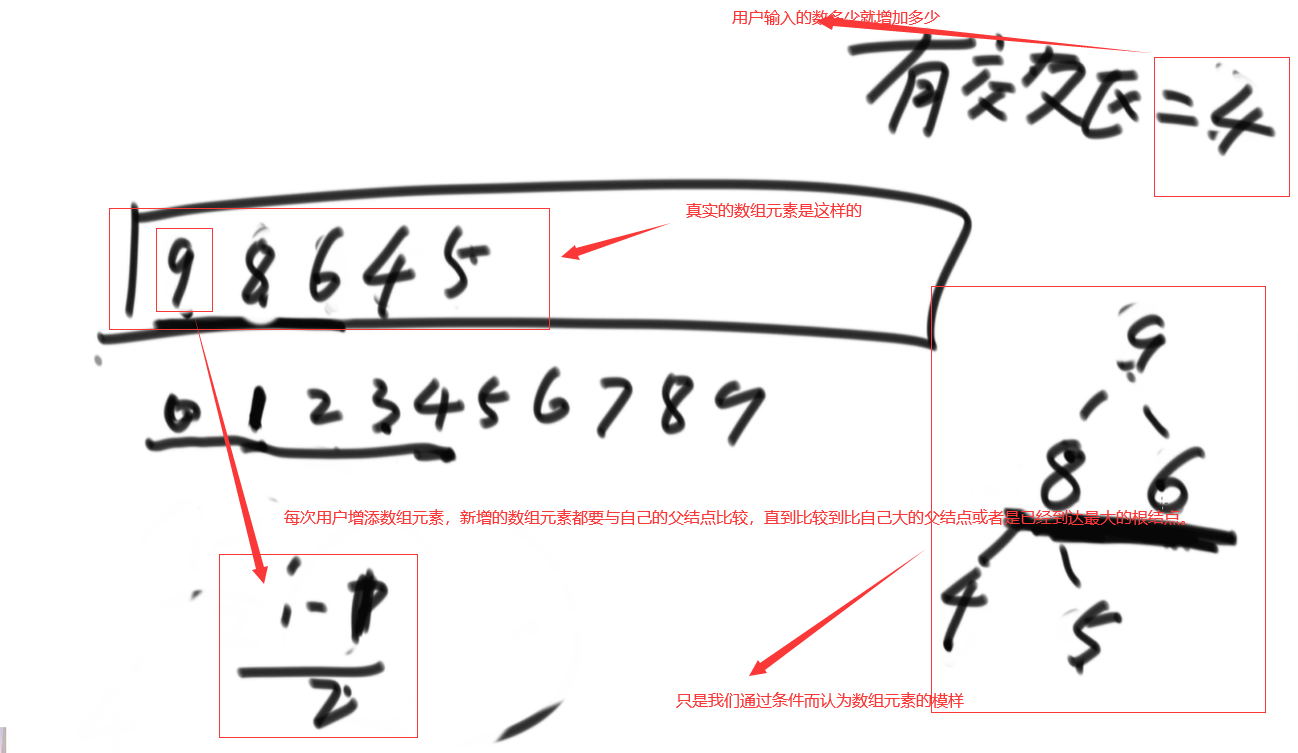 用户输入的数多少就增加多少
有效长=4
真实的数组元素是这样的
9 8 6 4 5
9
0 1 2 3 4 5 6 7 8 9
8 6
每次用户增添数组元素，新增的数组元素都要与自己的父结点比较，直到比较到比自己大的父结点或者是已经到达最大的根结点。
i-1
2
4 5
只是我们通过条件而认为数组元素的模样